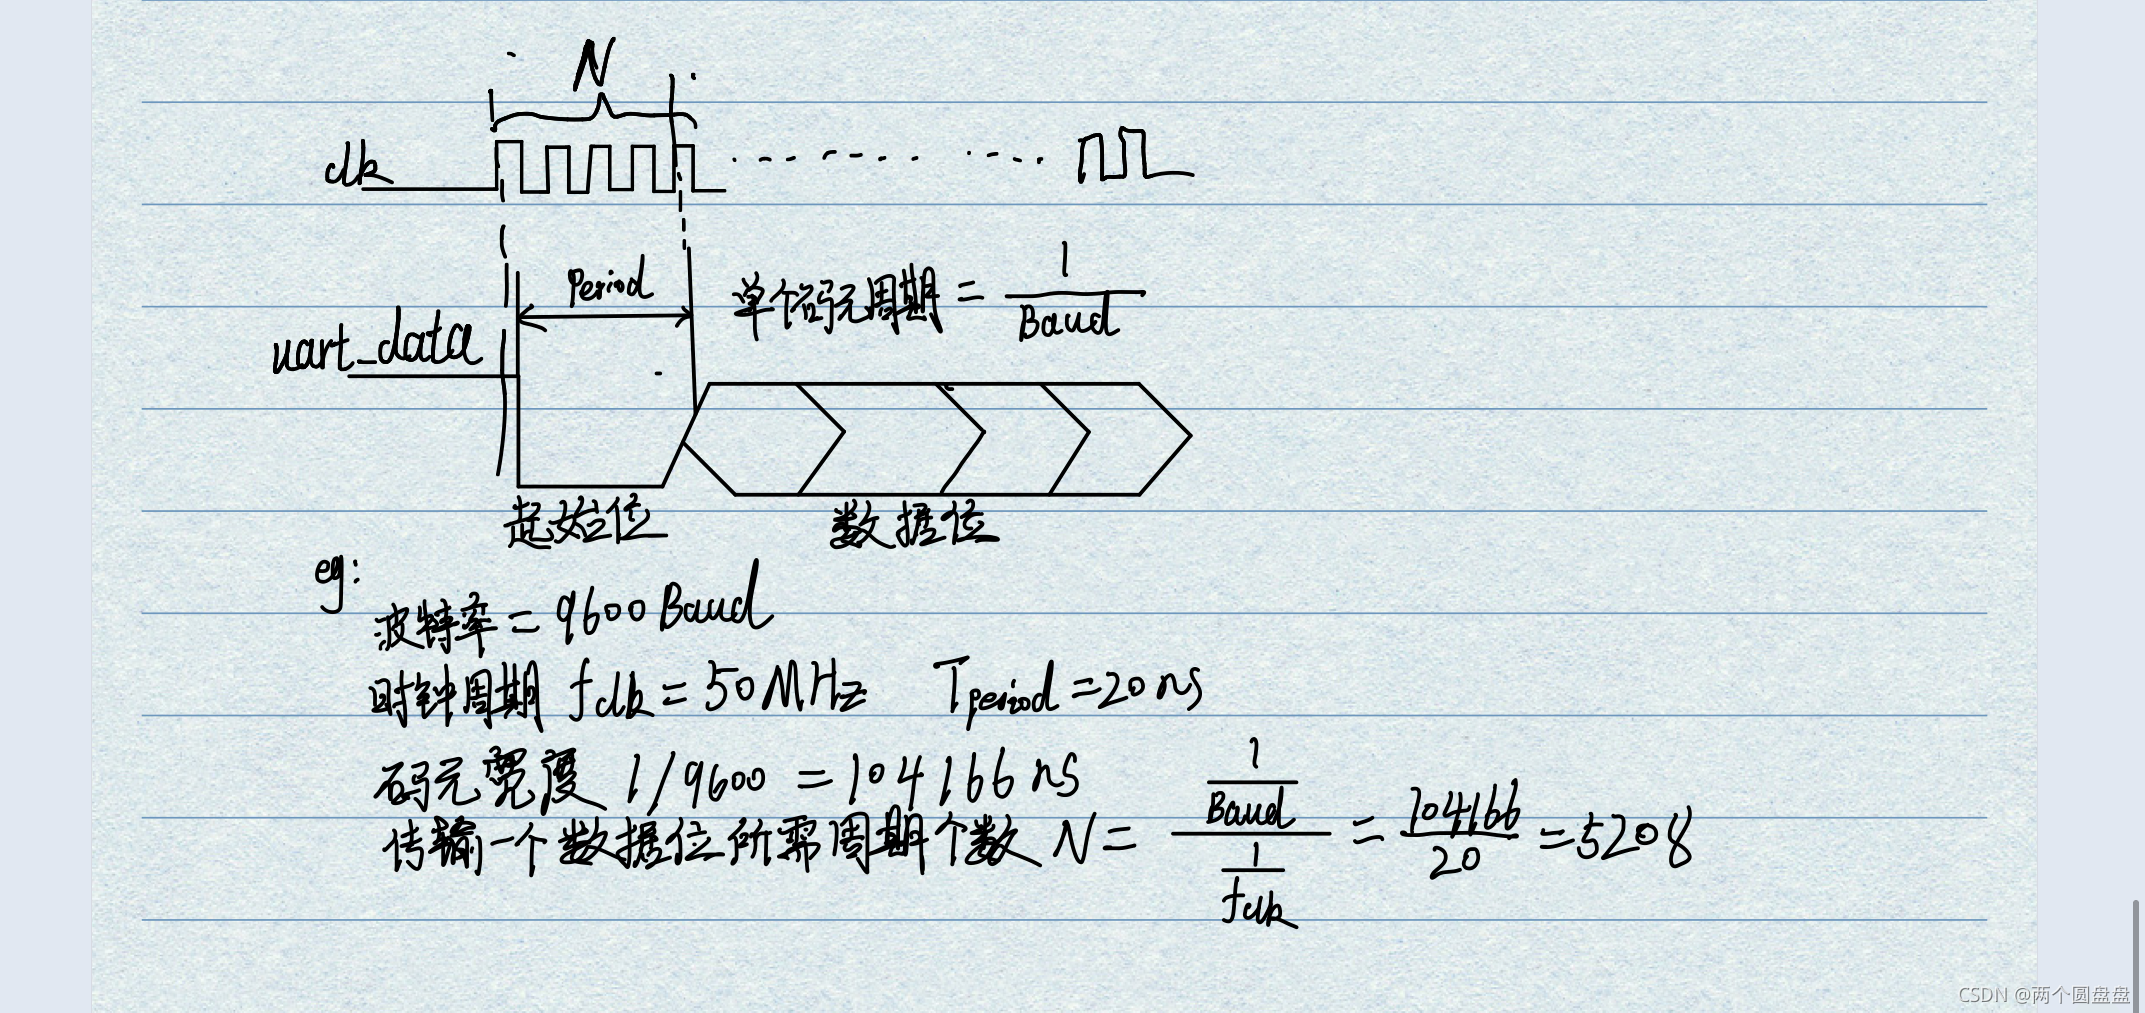 N
clk
Period
单个码元周期 = 1/Baud
uart_data
起始位 数据位
eg:
波特率 = 9600 Baud
时钟周期 fclk = 50MHz Tperiod = 20ns
码元宽度 1/9600 = 104166 ns
传输一个数据位所需周期个数 N = (1/Baud)/(1/fclk) = 104166/20 = 5208
CSDN @两个圆盘盘